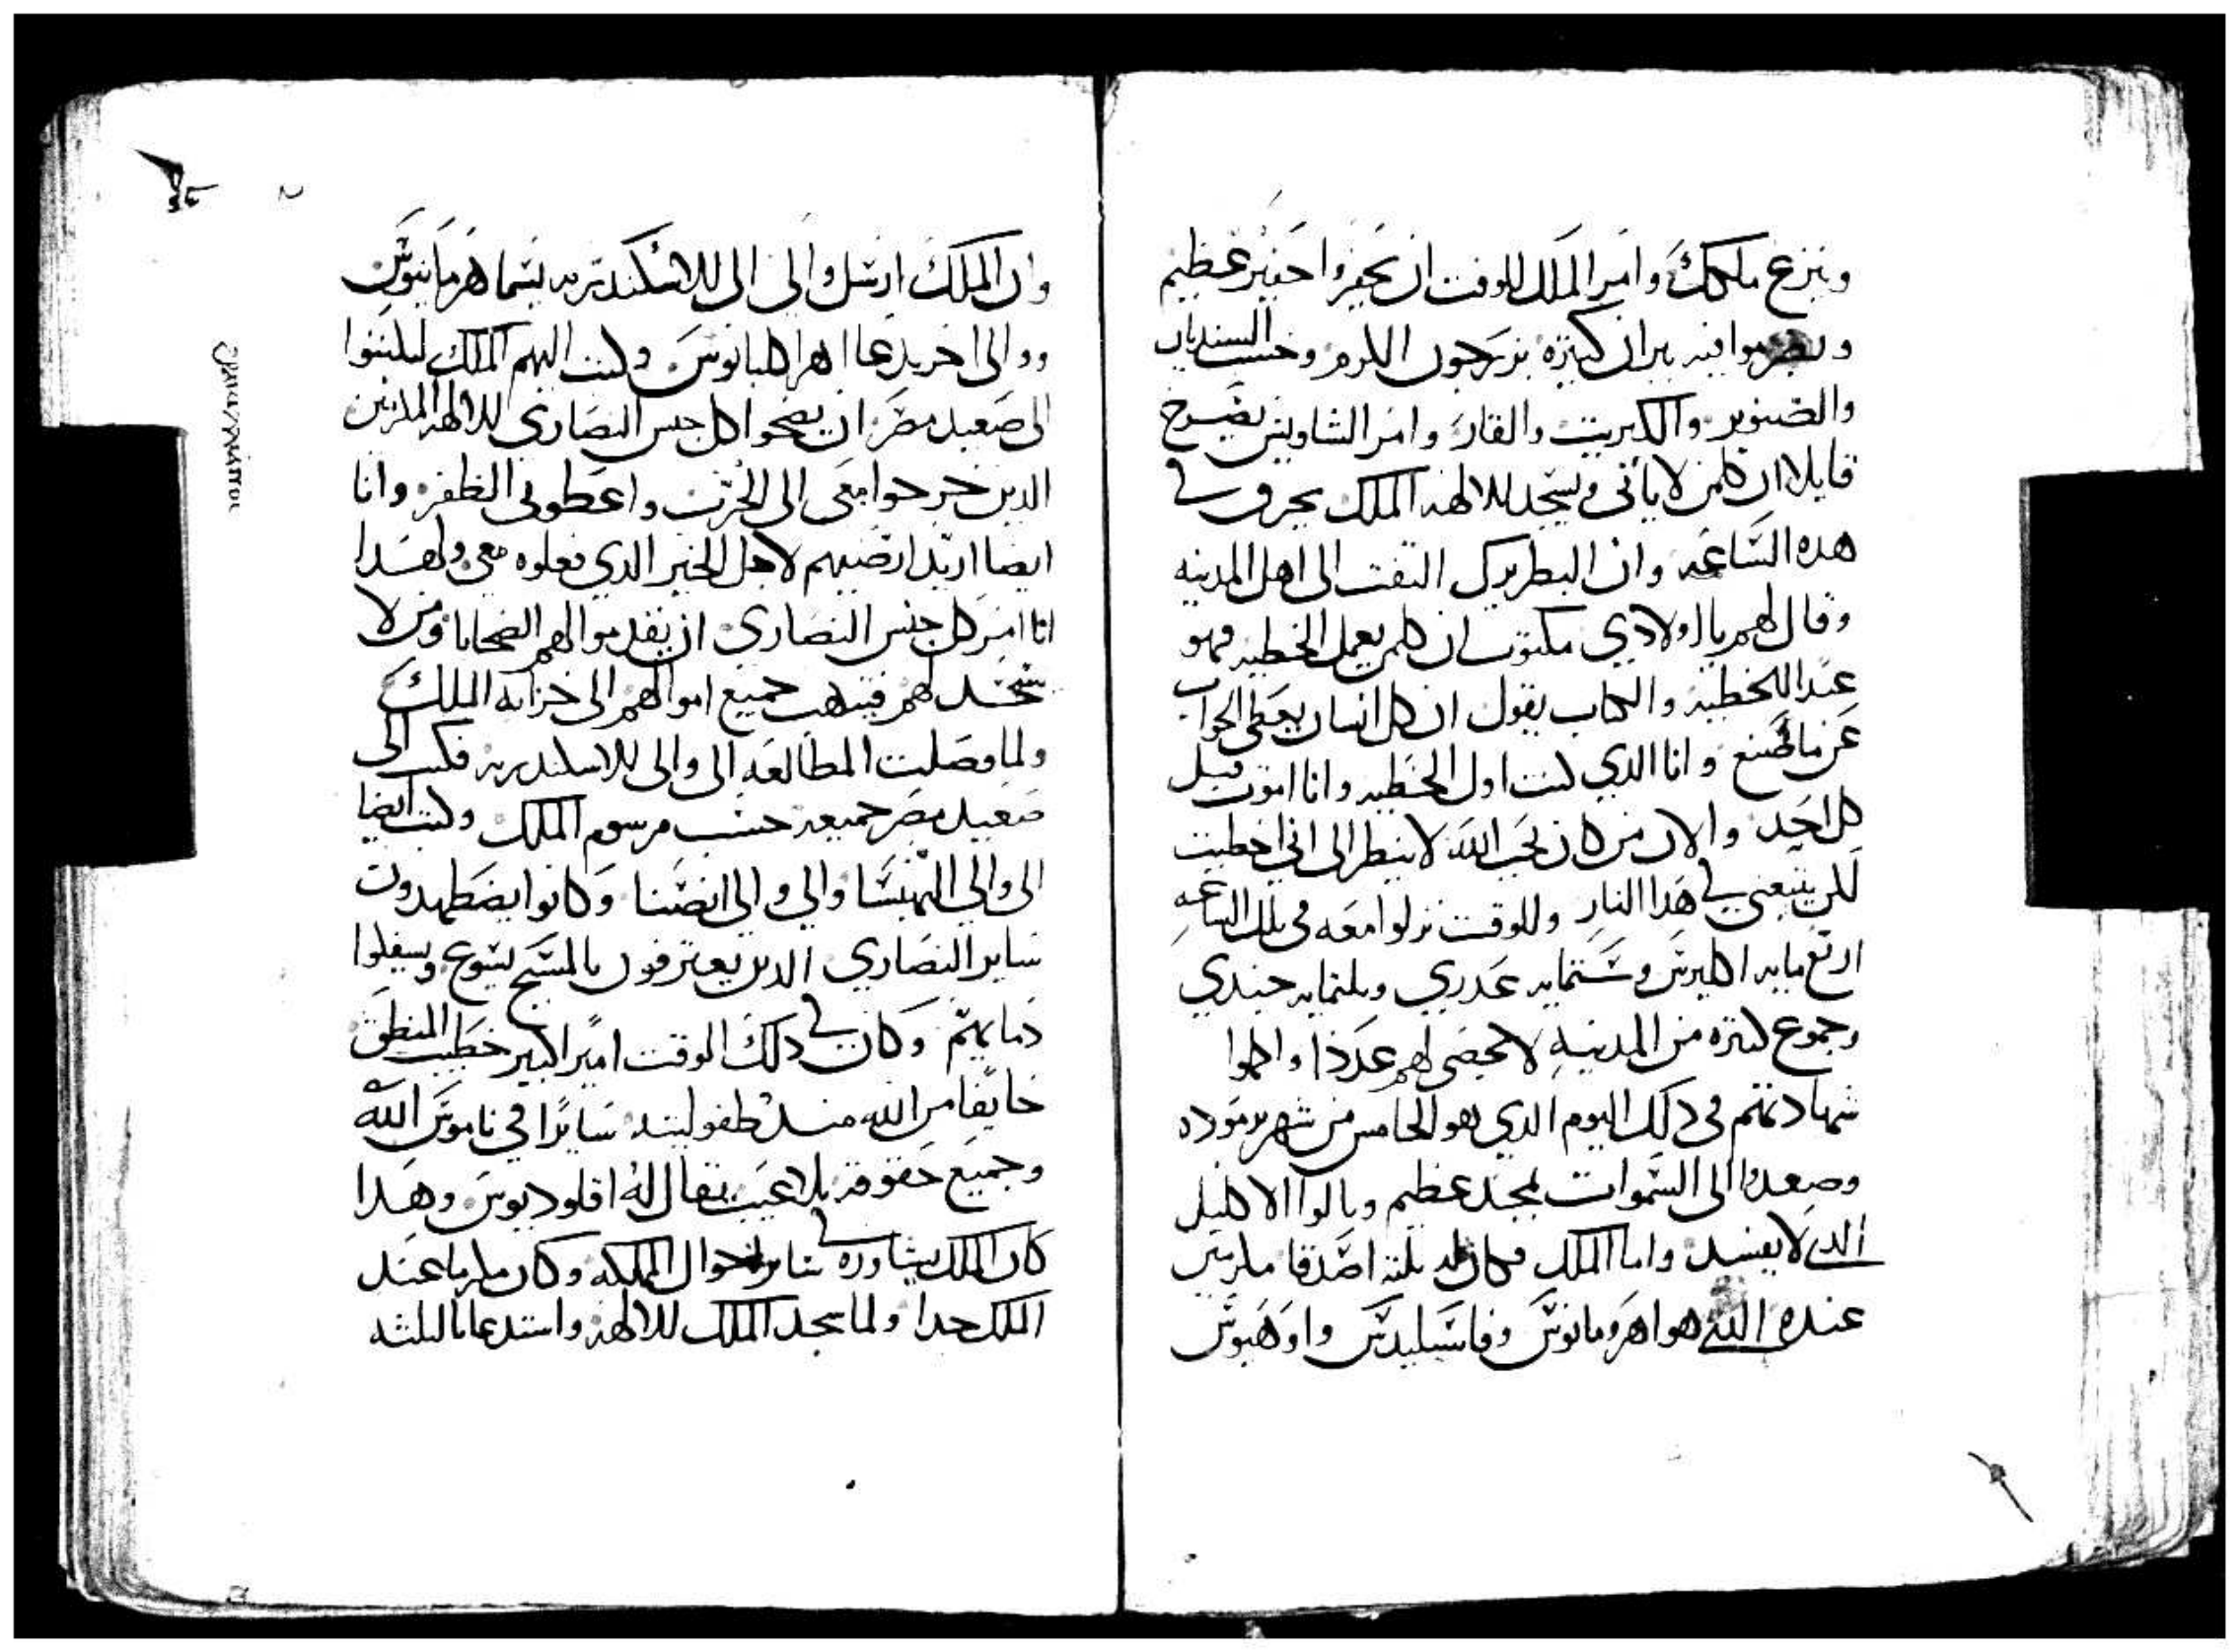 وينزع ملكك وامر الملك للوقت ان يحفروا حفير عظيم
ويضرموا فيه نيران كثيره بزرجون الكرم وخشب السنديان
والصنوبر والكبريت والقار وامر الشاويش يصرخ
قايلا ان كلمن لا ياتي ويسجد للالهة الملك يحرق في
هده الساعه وان البطريرك التفت الى اهل المدينه
وقال لهم يا اولادي مكتوب ان كلمن يعمل الخطيه فهو
عبد اللخطيه والكتاب يقول ان كل انسان يعطي الجواب
عن ما صنع وانا الدي كنت اول الخطيه وانا اموت قبل
كل احد والان من كان يحب الله لا ينظر الى اني اخطيت
لكن يتبعني في هدا النار وللوقت نزلوا معه في تلك الساعه
اربع مايه اكليرس وستمايه عدري وتلتمايه جندي
وجموع كثره من المدينه لا يحصى لهم عددا واكملوا
شهادتهم في دلك اليوم الدي هو الخامس من شهر برموده
وصعدوا الى السموات بمجد عظيم ونالوا الاكليل
الدي لا يفسد واما الملك فكان له تلته اصدقا ملازمين
عنده الدي هو اهرومانوس وفاسيليدس واوهيوس
وان الملك ارسل والي الى للاسكندريه يسما هرمانيوس
ووالى اخر يدعا اهراكليانوس وكتب اليهم الملك ليكتبوا
الى صعيد مصر ان يضحوا كل جنس النصارى للالهه المكرمين
الدين خرجوا معي الى الحرب واعطوني الظفر وانا
ايضا اريد ارضيهم لاجل الخير الدي فعلوه معي ولهدا
انا امر كل جنس النصارى ان يقدموا لهم الضحايا ومن لا
يسجد لهم فينهب جميع اموالهم الى خزانه الملك
ولما وصلت المطالعه الى والى للاسكندريه فكتب الى
صعيد مصر جميعه حسب مرسوم الملك وكتب ايضا
الى والي البهنسا والي والي انصنا وكانوا يضطهدون
ساير النصارى الدين يعترفون بالمسيح يسوع ويسفكوا
دمايهم وكان في دلك الوقت امير كبير خطيب المنطق
خايفا من الله مند طفوليته سايرا في ناموس الله
وجميع حقوقه بلا عيب يقال له اقلوديوس وهدا
كان الملك يشاوره في ساير احوال المملكه وكان مكرما عند
الملك جدا ولما سجد الملك للالهه واستدعا بالتلته